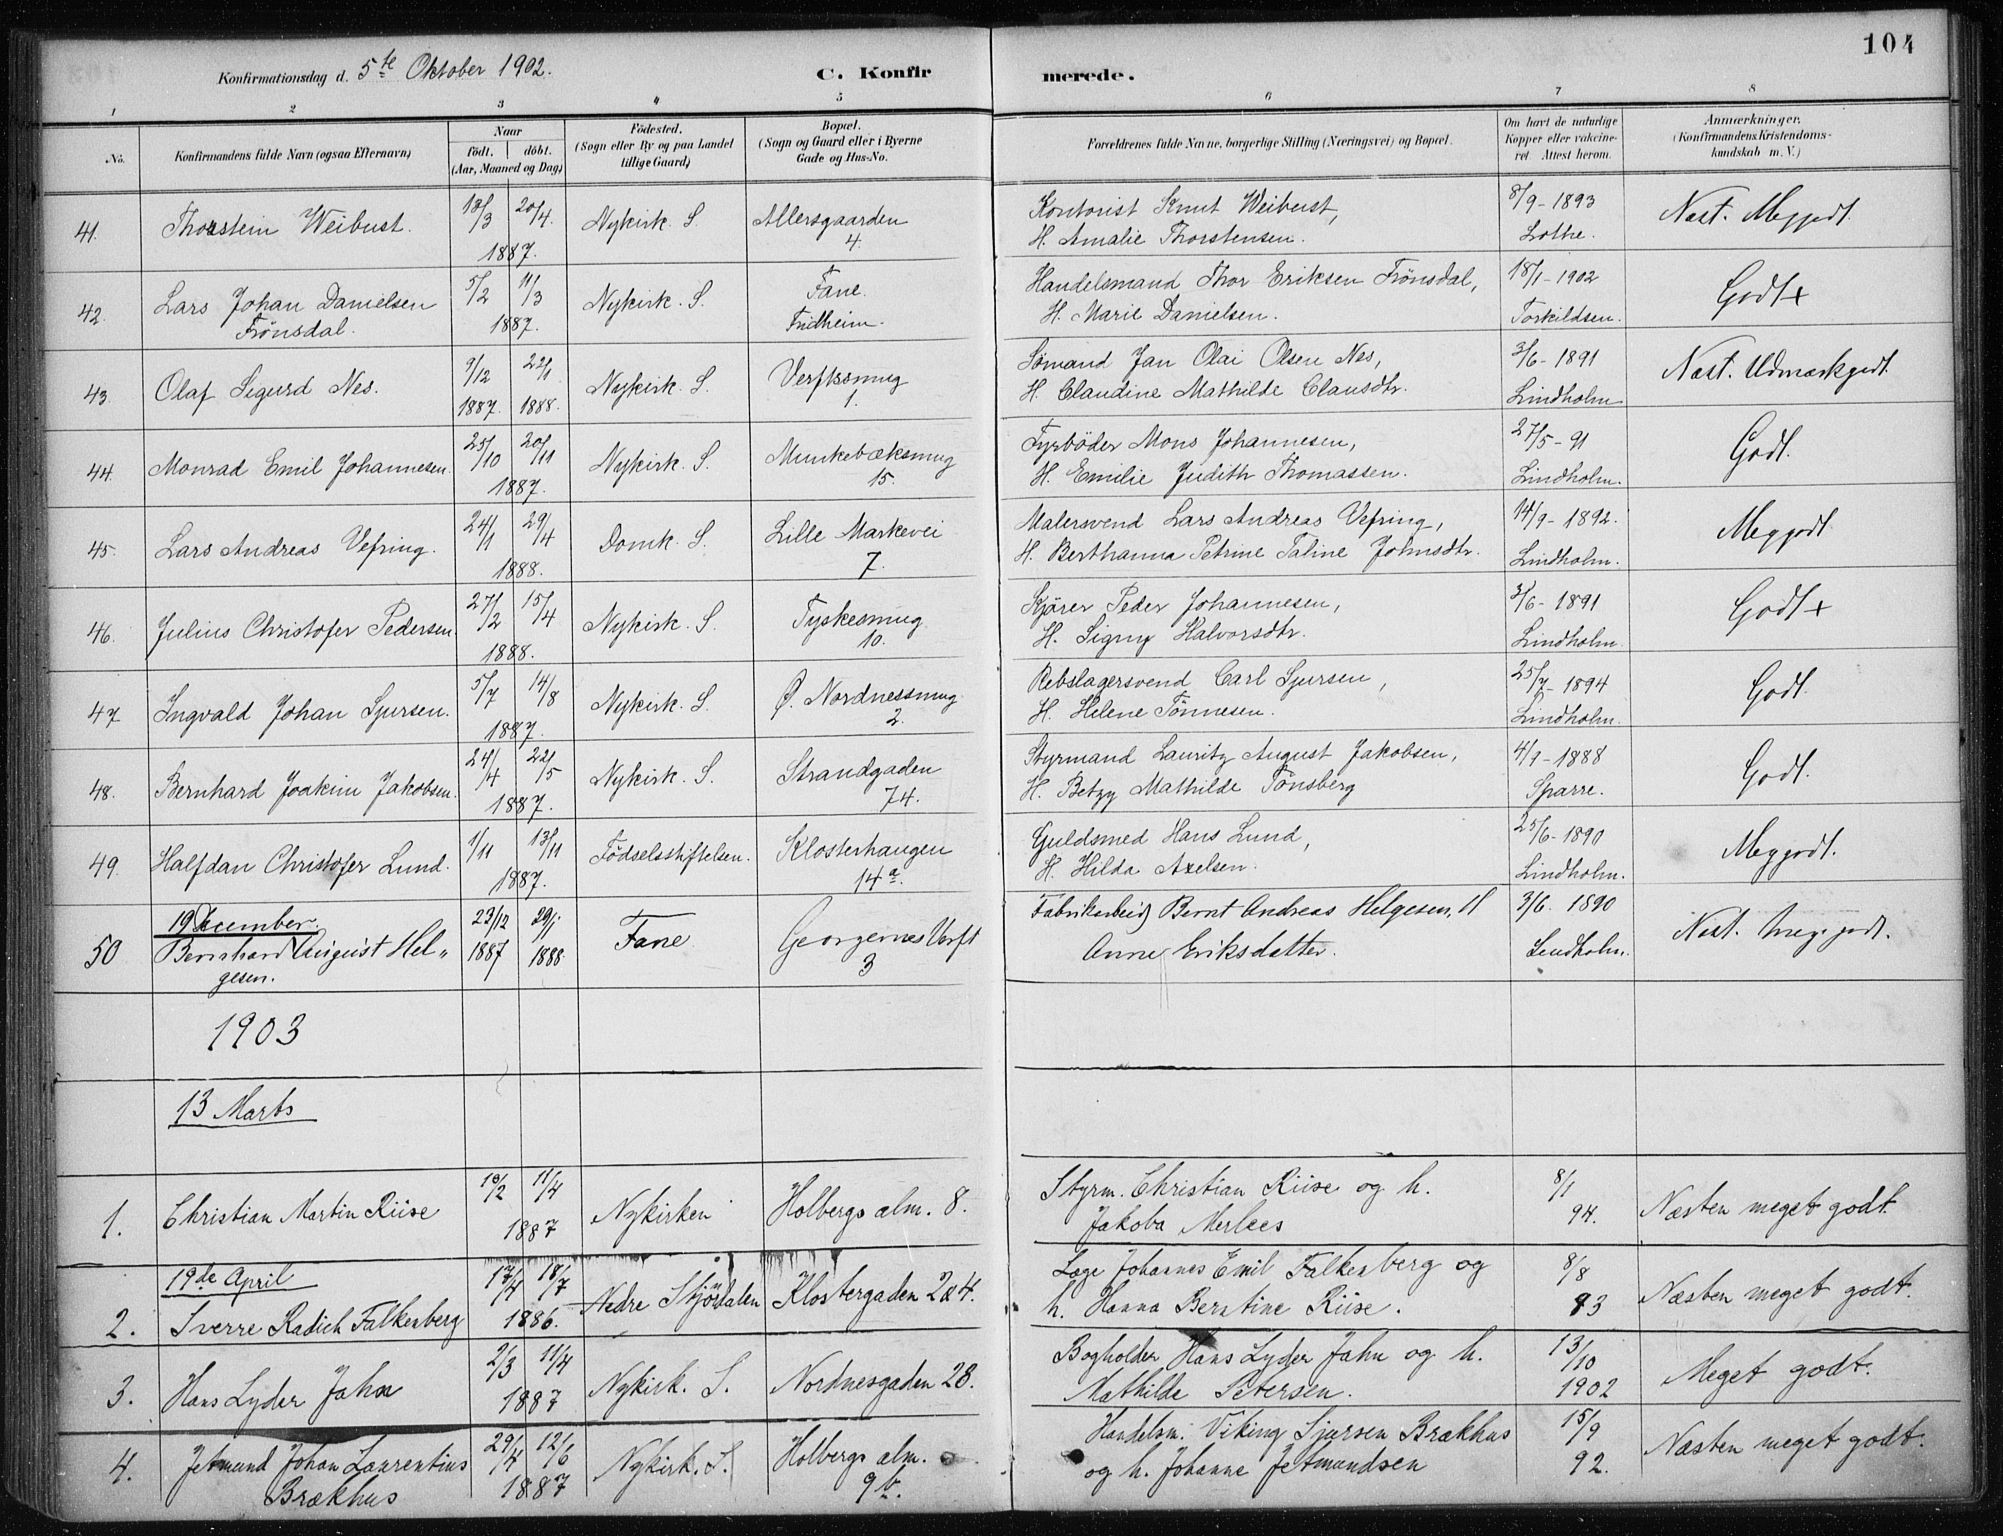 104
Konfirmationsdag d. 5te Oktober 1902. C. Konfirmerede.
1 2 3 4 5 6 7 8
No. Konfirmandens fulde Navn (ogsaa Efternavn) Naar født. døbt. (Aar, Maaned og Dag) Fødested. (Sogn eller By og paa Landet tillige Gaard) Bopæl. (Sogn og Gaard eller i Byerne Gade og Hus-No. Forældrenes fulde Navne, borgerlige Stilling (Næringsvei) og Bopæl. Om havt de naturlige Kopper eller vaccineret Attest herom. Anmærkninger. (Konfirmandens Kristendomskundskab m. V.)
41. Thorstein Weibust. 18/3 20/4 1887. Nykirk. S. Allersgaarden 4. Kontorist Knut Weibust, 8/9-1893 Næst. Meggodt.
H. Amalie Thorstensen. Lothe.
42. Lars Johan Danielsen Frønsdal. 5/2 11/3 1887. Nykirk. S. Fane. Fridheim. Handelsmand Thor Eriksen Frønsdal, 18/1-1902 Godt+
H. Marie Danielsen. Torkildsen.
43. Olaf Sigurd Nes. 9/12 1887. 22/1 1888. Nykirk. S. Verftssmug 1. Sømand Jan Olai Olsen Nes, 3/6-1891 Næst. Udmærkgodt.
H. Claudine Mathilde Clausdtr. Lindholm
44. Monrad Emil Johannesen. 25/10 20/11 1887. Nykirk. S. Munkebæksmug 15. Fyrbøder Mons Johannesen, 27/5-91 Godt.
H. Emilie Judith Thomassen. Lindholm.
45. Lars Andreas Vefring. 24/1 29/4 1888. Domk. S. Lille Markevei 7. Malersvend Lars Andreas Vefring, 14/9-1892. Meggodt.
H. Berthanna Petrine Taline Johnsdtr. Lindholm.
46. Julius Christofer Pedersen. 27/2 15/4 1888. Nykirk. S. Tyskesmug 10. Kjører Peder Johannesen, 3/6-1891 Godt+
H. Signy Halvorsdtr. Lindholm.
47. Ingvald Johan Sjursen. 5/7 14/8 1887. Nykirk. S. Ø. Nordnessmug 2. Rebslagersvend Carl Sjursen, 25/7-1894 Godt.
H. Helene Tønnesen. Lindholm.
48. Bernhard Joakim Jakobsen. 24/4 22/5 1887. Nykirk. S. Strandgaden 74. Styrmand Lauritz August Jakobsen, 4/9-1888 Godt.
H. Betzy Mathilde Tønsberg Sparre.
49. Halfdan Christofer Lund. 1/11 13/11 1887. Fødselsstiftelsen. Klosterhaugen 14a. Guldsmed Hans Lund, 25/6-1890 Meggodt.
H. Hilda Axelsen. Lindholm.
19 December.
50 Bernhard August Helgesen. 23/12 1887 29/1 1888 Fane Georgernes Verft 3 Fabrikarbeid Bernt Andreas Helgesen, H 3/6. 1890 Næst. meg. godt.
Anne Eriksdatter. Lindholm.
1903
13 Marts
1. Christian Martin Riise 10/2 11/4 1887 Nykirken Holbergs alm. 8. Styrm. Christian Riise og h. 8/1 94. Næsten meget godt.
Jakoba Merlees
19de April
2. Sverre Radich Falkenberg 17/4 18/7 1886. Nedre Stjørdalen Klostergaden 2a4. Læge Johannes Emil Falkenberg og 8/8 93 Næsten meget godt.
h. Hanna Berntine Riise.
3. Hans Lyder Jahn 2/3 11/4 1887 Nykirk. S. Nordnesgaden 28. Bogholder Hans Lyder Jahn og h. 13/10 1902 Meget godt.
Mathilde Petersen.
4. Jetmund Johan Laurentius Brækhus 29/4 12/6 1887 Nykirk. S. Holbergs alm. 9b. Handelsm. Viking Sjursen Brækhus 15/9 92. Næsten meget godt.
og h. Johanne Jetmundsen